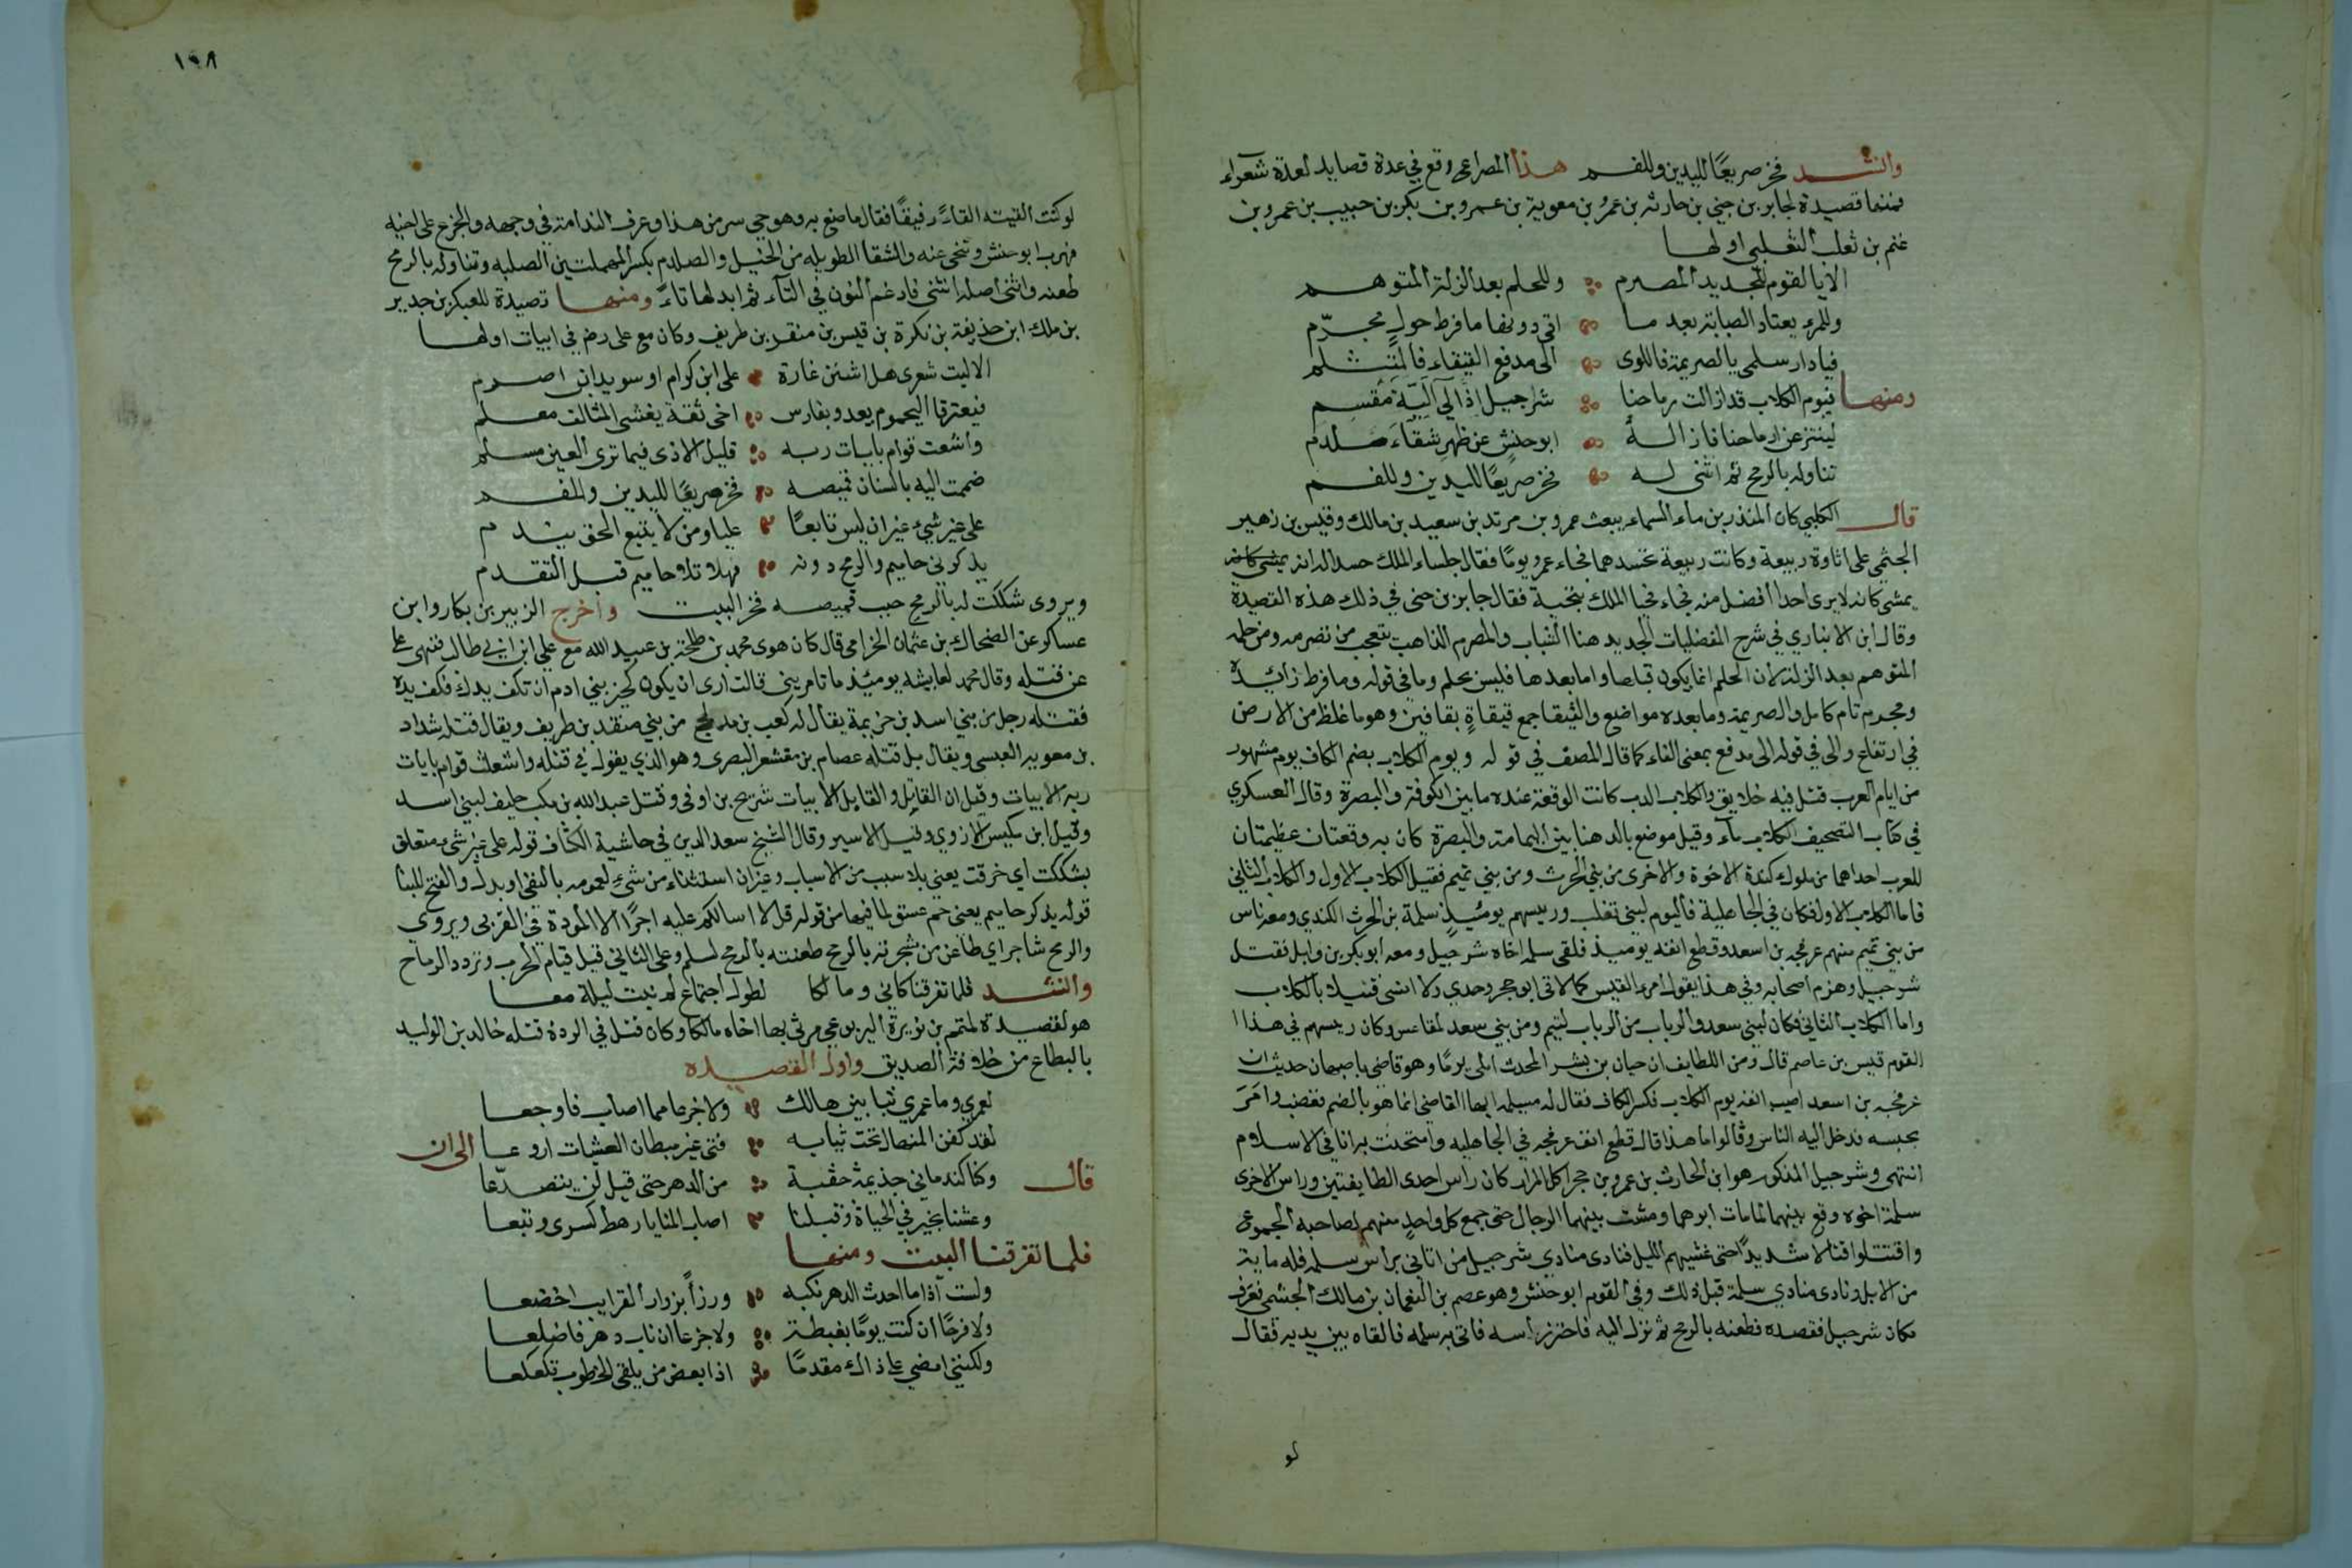 وانشد فخر صريعًا لليدين وللفم هذا المصراع وقع في عدة قصايد لعدة شعراء
فمنها قصيدة لجابر بن حني بن حارثه بن عمرو بن معوية بن عمرو بن بكر بن حبيب بن عمرو بن
غنم بن تغلب التغلبي اولها
الا يا لقوم للجديد المصرم وللحلم بعد الزلة المتوهم
وللمرء يعتاد الصبابة بعد ما اتى دونها ما فرط حول مجرّم
فيا دار سلمى بالصريمة فاللوى الى مدفع القيقاء فالمتثلم
ومنها فيوم الكلاب قد ازالت رماحنا شرحبيل اذ آلى اَلِيّة مُقسِم
لينتزعن ارماحنا فازاله ابو حنش عن ظهر شقّاء صلدم
تناوله بالرمح ثم اتنى له فخر صريعًا لليدين وللفم
قال الكلبي كان المنذر بن ماء السماء يبعث عمرو بن مرثد بن سعيد بن مالك وقيس بن زهير
الجشمي على اتاوة ربيعة وكانت ربيعة تحسدهما فجاء عمرو يومًا فقال جلساء الملك حسدا له انه يمشي كانه
يمشي كانه لا يرى احدا افضل منه فجاء فحيا الملك بتحية فقال جابر بن حني في ذلك هذه القصيدة
وقال ابن الانباري في شرح المفضليات الجديد هنا الشباب والمصرم الذاهب يتعجب من تصرمه ومن حلمه
المتوهم بعد الزلة لان الحلم انما يكون قبلها واما بعدها فليس بحلم وما في قوله وما فرط زائدة
ومجرم تام كامل والصريمة وما بعده مواضع والقيقا جمع قيقاةٍ بقافين وهو ما غلظ من الارض
في ارتفاع والى في قوله الى مدفع بمعنى الفاء كما قال المصنف في قوله ويوم الكلاب بضم الكاف يوم مشهور
من ايام العرب قتل فيه خلايق والكلاب الذي كانت الوقعة عنده ما بين الكوفة والبصرة وقال العسكري
في كتاب التصحيف الكلاب ماء وقيل موضع بالدهنا بين اليمامة والبصرة كان به وقعتان عظيمتان
للعرب احداهما من ملوك كندة الاخوة والاخرى من بني الحرث ومن بني تميم فقيل الكلاب الاول والكلاب الثاني
فاما الكلاب الاول فكان في الجاهلية فاليوم لبني تغلب ورييسهم يوميذٍ سلمة بن الحرث الكندي ومعه ناس
من بني تميم منهم عرفجه بن اسعد وقطع انفه يوميذ فلقى سلمه اخاه شرحبيل ومعه ابو بكر بن وايل فقتل
شرحبيل وهزم اصحابه وفي هذا يقول امرء القيس كما لاقى ابو حجر وجدي ولا انسى قتيلا بالكلاب
واما الكلاب الثاني فكان لبني سعد والرباب من الرباب لتيم ومن بني سعد لمقاعس وكان رييسهم في هذا ا
القوم قيس بن عاصم قال ومن اللطايف ان حيان بن بشر المحدث املى يومًا وهو قاضي باصبهان حديث ان
عرفجه بن اسعد اصيب انفه يوم الكلاب فكسر الكاف فقال له مستمليه ايها القاضي انما هو بالضم فغضب وامَرَ
بحبسه فدخل اليه الناس وقالوا ما هذا قال قطع انف عرفجه في الجاهليه وامتحنت به انا في الاسلام
انتهى وشرحبيل المذكور هو ابن الحارث بن عمرو بن حجر اكل المرار كان راس احدى الطايفتين وراس الاخرى
سلمة اخوه وقع بينهما لما مات ابوهما ومشت بينهما الرجال حتى جمع كل واحدٍ منهم لصاحبه الجموع
واقتتلوا قتالا شديدًا حتى غشيهم الليل فنادى منادي شرحبيل من اتاني براس سلمه فله ماية
من الابل ونادى منادي سلمة قبل ذلك وفي القوم ابو حنش وهو عصم بن النعمان بن مالك الجشمي فعَرَف
مكان شرحبيل فقصده فطعنه بالرمح ثم نزل اليه فاحتز راسه فاتى به سلمه فالقاه بين يديه فقال
لو
١٩٨
لو كنت القيته القاءً رفيقًا فقال ما صنع به وهو حي سر من هذا وعرف الندامة في وجهه والجزع على اخيه
فهرب ابو حنش وتنحى عنه والشقا الطويله من الخيل والصلدم بكسر المهملتين الصلبه وتناوله بالرمح
طعنه واتنى اصله انثنى فادغم النون في التآء ثم ابدلها تاءً ومنها قصيدة للعبكر بن جدير
بن ملك ابن حذيفة بن نكرة بن قيس بن منقر بن طريف وكان مع على رض في ابيات اولها
الا ليت شعري هل اشنن غارة على ابن كرام او سويد ابن اصرم
فيعترقا اليحموم يعدو بفارس اخى ثقة يغشى المثالف معلم
واشعت قوام بايات ربه قليل الاذى فيما ترى العين مسلم
ضممت اليه بالسنان قميصه فخر صريعًا لليدين وللفم
على غير شيء غير ان ليس تابعًا عليا ومن لا يتبع الحق يندم
يذكرني حاميم والرمح دونه فهلا تلا حاميم قبل التقدم
ويروى شككت له بالرمح جيب قميصه فخر البيت واخرج الزبير بن بكار وابن
عساكر عن الضحاك بن عثمان الخزامي قال كان هوى محمد بن طلحة بن عبيد الله مع علي ابن ابي طالب فنهى على
عن قتله وقال محمد لعايشه يوميذ ما تامريني قالت ارى ان يكون كخير بني ادم ان تكف يدك فكف يده
فقتله رجل من بني اسد بن خزيمة يقال له كعب بن مدلج من بني منقذ بن طريف ويقال قتله شداد
بن معويه العبسي ويقال بل قتله عصام بن مقشعر البصري وهو الذي يقول في قتله واشعث قوام بايات
ربه الابيات وقيل ان القاتل والقايل الابيات شريح بن اوفى وقتل عبد الله بن مكب حليف لبني اسد
وقيل ابن مكيس الازدي وقيل الاسير وقال الشيخ سعد الدين في حاشية الكشاف قوله على غير شيء متعلق
بشككت اي خرقت يعني بلا سبب من الاسباب وغير ان استثناء من شئ لعمومه بالنفي او بدل والفتح للبنا
قوله يذكر حاميم يعني حم عسق لما فيها من قوله قل لا اسالكم عليه اجرًا الا المودة في القربى ويروي
والرمح شاجر اي طاعن من شجرته بالرمح طعنته بالرمح لسلم وعلى الثاني قبل قيام الحرب وتردد الرماح
وانشد فلما تفرقنا كاني ومالكا لطول اجتماع لم نبت ليلة معا
هو لقصيدة لمتمم بن نويرة اليربوعي مرثى بها اخاه مالكا وكان قتل في الردة قتله خالد بن الوليد
بالبطاح من خلافة الصديق واول القصيده
لعمري وما عمري بتابين هالك ولا جزعا مما اصاب فاوجعا
لقد كفن المنهال تحت ثيابه فتى غير مبطان العشيات اروعا الى ان
قال وكنا كندماني جذيمة حقبة من الدهر حتى قيل لن يتصدّعا
وعشنا بخير في الحياة وقبلنا اصاب المنايا رهط كسرى وتبعا
فلما تفرقنا البيت ومنها
ولست اذا ما احدث الدهر نكبه ورزأً بزوار القرايب اخضعا
ولا فرحًا ان كنت يومًا بغبطة ولا جزعا ان ناب دهر فاضلعا
ولكنني امضي على ذاك مقدمًا اذا بعض من يلقى الخطوب تكعكعا